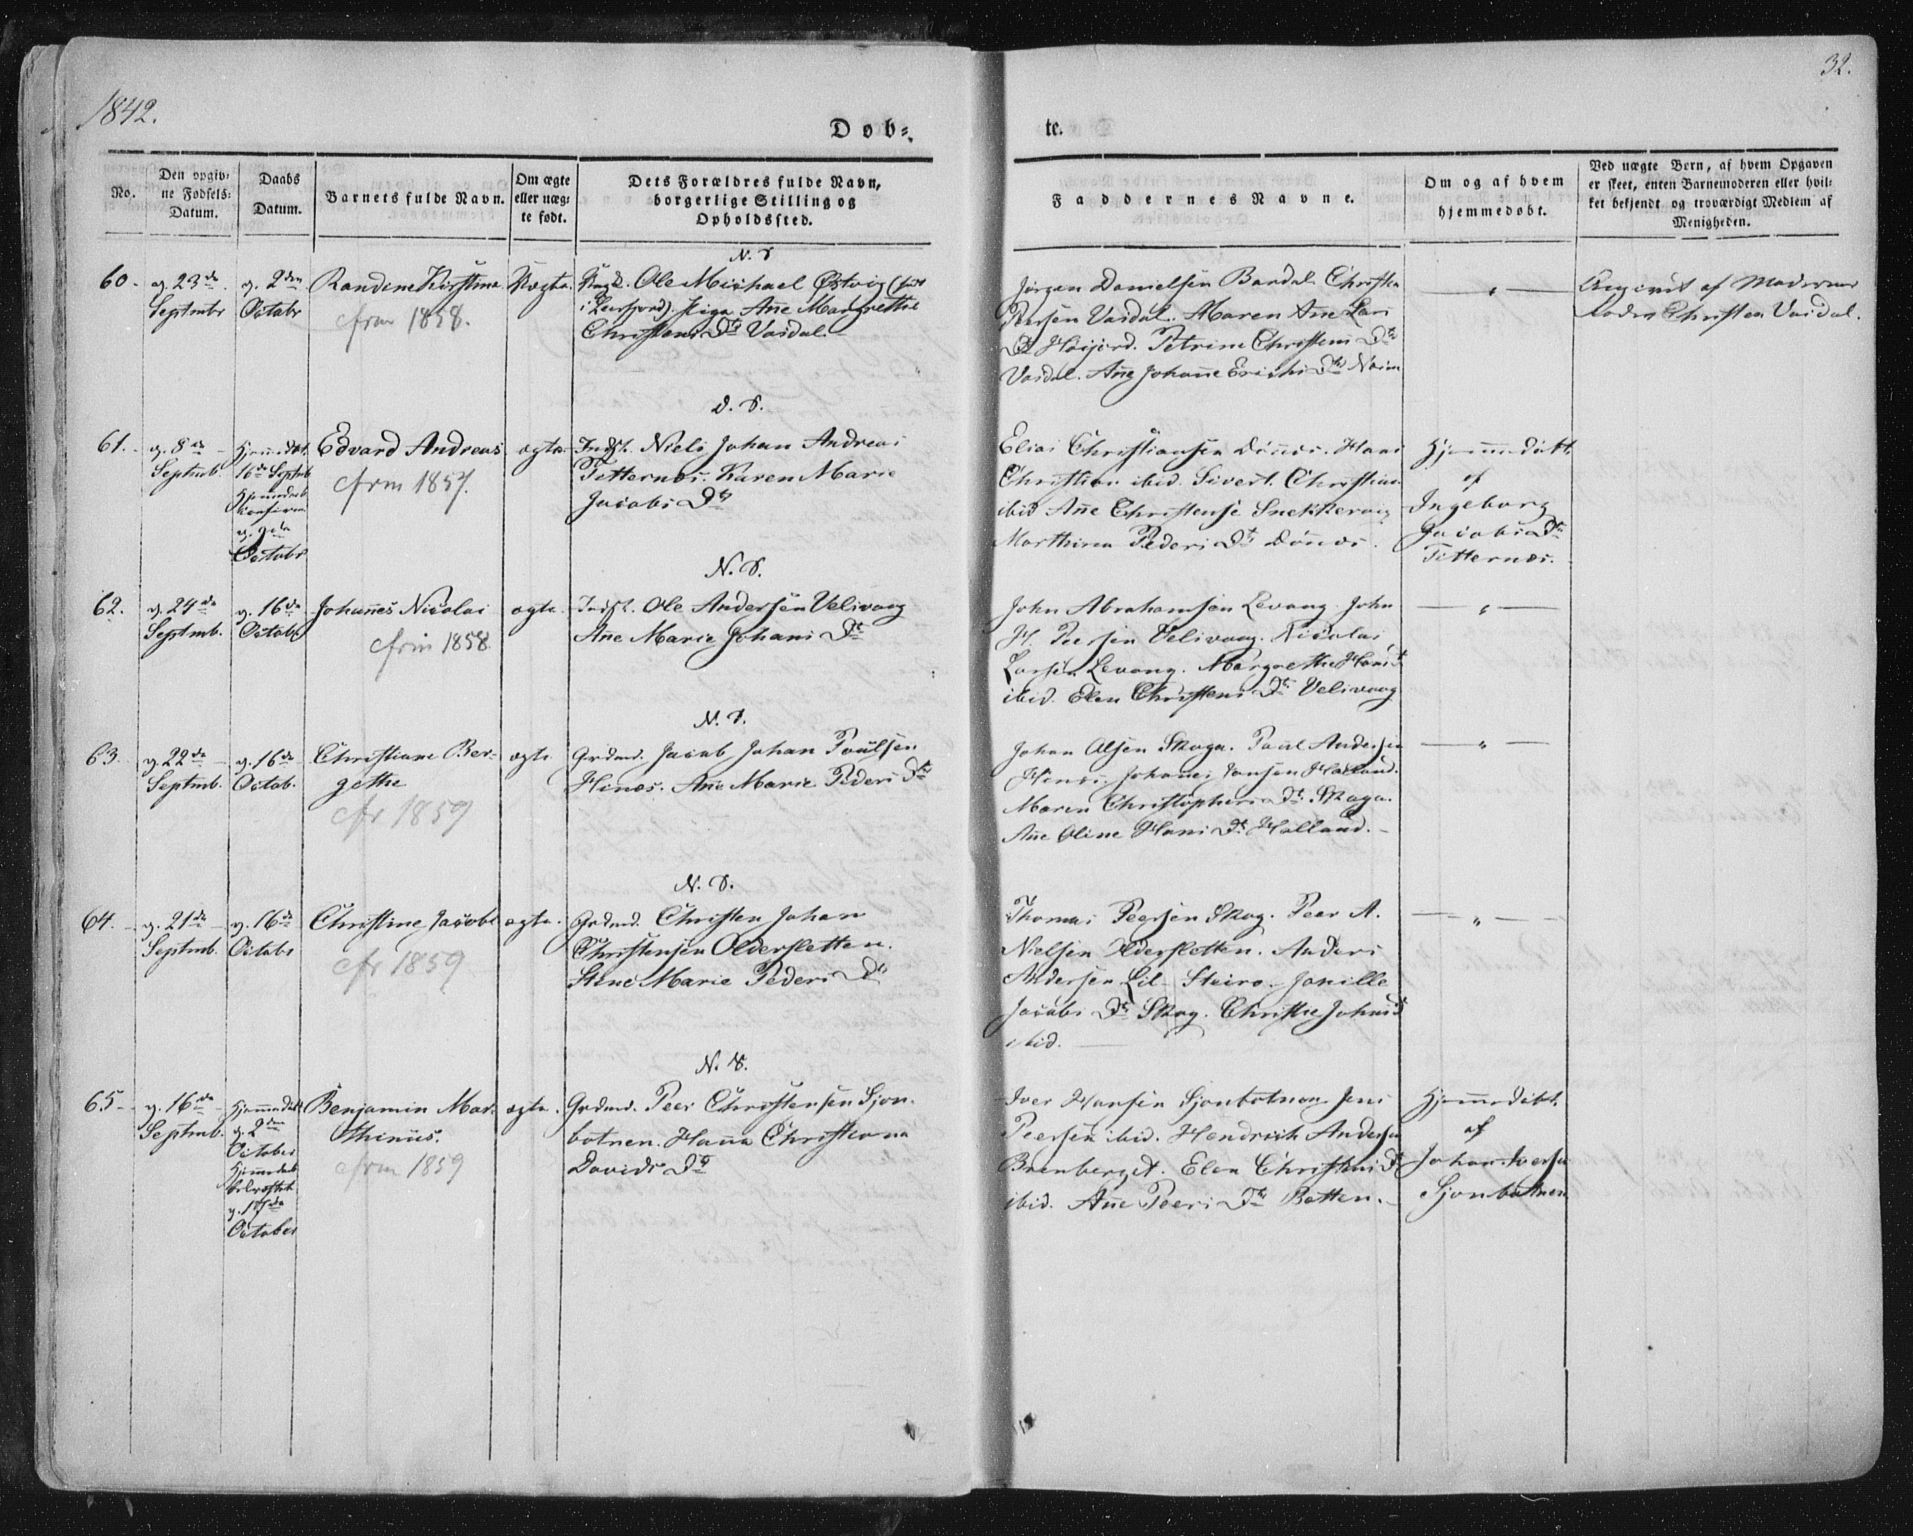 1842.
32.
Døb=
te.
No.
Den opgiv-
ne Fødsels-
Datum.
Daabs
Datum.
Barnets fulde Navn.
Om ægte
eller uæg-
te født.
Dets Forældres fulde Navn,
borgerlige Stilling og
Opholdssted.
Faddernes Navne.
Om og af hvem
hjemmedøbt.
Ved uægte Børn, af hvem Opgaven
er skeet, enten Barnemoderen eller hvil-
ket bekjendt og troværdigt Medlem af
Menigheden.
60.
23de
Septmbr
2den
Octobr
Randine Kirstina
cfrm 1858.
Uægte.
Ole Michael Østvig
Pige Ane Margrethe
Christens Dtr Vaidal
Jørgen Danielsen Bardal. Christen
Peersen Vaidal. Maren Ane Lars
Dtr Høigjord. Petrine Christens Dtr
Vaidal. Ane Johane Erichs Dtr
Angivet af Moderens
Fader Christen Vaidal.
61.
8de
Septmb.
Hjemmedøbt
16de Septmb
Octobr
Edvard Andreas
cfrm 1857.
ægte.
Indst. Niels Johan Andreas
Titternæs. Karen Marie
Jacobs Dtr
Elias Christiansen Dønæs. Hans
Christian ibid. Sivert Christian
ibid Ane Christense
Marthina Peders Dtr Dønæs.
Hjemmedøbt
af
Ingeborg
Jacobs Dtr
Titternæs.
62.
N. S.
24de
Septmb.
16de
Octobr
Johannes Nicolai
cfrm 1858.
ægte.
Indst. Ole Andersen Velivaag
Ane Marie Johans Dtr
John Abrahamsen Levang. John
H. Peersen Velivaag. Nicolai
Larsen Levang. Margrethe Hans D
ibid. Elen Christens Dtr Velivaag
63.
N. S.
22de
Septmb.
16de
Octob.
Christiane Ber-
gethe
cfr 1859
ægte
Grdmd. Jacob Johan Poulsen
Hinæs. Ane Marie Peders Dtr
Johan Olsen Skaga. Poul Andersen
Hinæs. Johanes Hansen Halland.
Maren Christophers Dtr Skaga.
Ane Oline Hans Dtr Halland.
64.
N. S.
21de
Septmb.
16de
Octobr
Christine Jacobe
cfr 1859
ægte.
Grdmd. Christen Johan
Christensen Oldersletten.
Stine Marie Peders Dtr
Thomas Peersen Skog. Peer A.
Nielsen Oldersletten. Anders
Andersen Lil-Steiro. Jonille
Jacobs Dtr Skog. Christine Johns D
ibid.
65.
N. S.
16de
Septmb.
Hjemmedøbt
2den
October
17de
October
Benjamin Mar-
thinus.
cfrm 1859
ægte.
Grdmd. Peer Christensen Sjon-
botnen. Hana Christiana
Davids Dtr
Iver Hansen Sjonbotnen. Jens
Peersen ibid. Hendrich Andersen
Brenberget. Elen Christens D
ibid. Ane Peers Dtr Botten.
Hjemmedøbt
af
Johan Iversen
Sjonbottnen